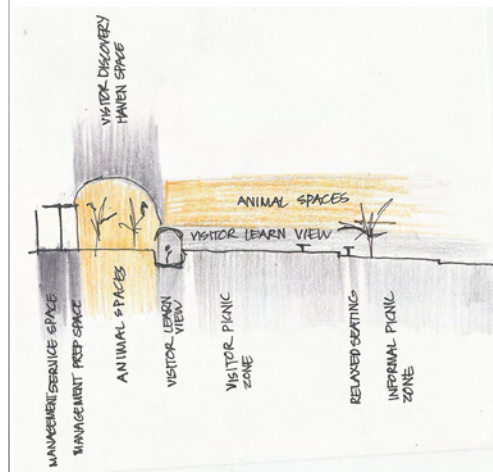 VISITOR DISCOVERY
HAVEN SPACE
ANIMAL SPACES
VISITOR LEARN VIEW
MANAGEMENT SERVICE SPACE
MANAGEMENT PREP SPACE
ANIMAL SPACES
VISITOR LEARN
VIEW
VISITOR PICNIC
ZONE
RELAXED SEATING
INFORMAL PICNIC
ZONE